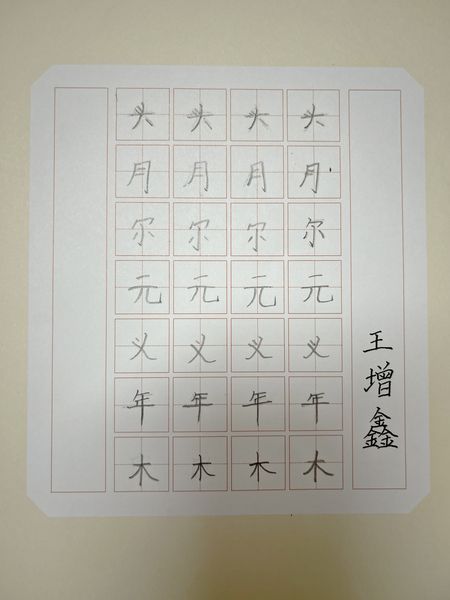 头头头头
月月月月
尔尔尔尔
元元元元
义义义义
年年年年
木木木木
王增鑫